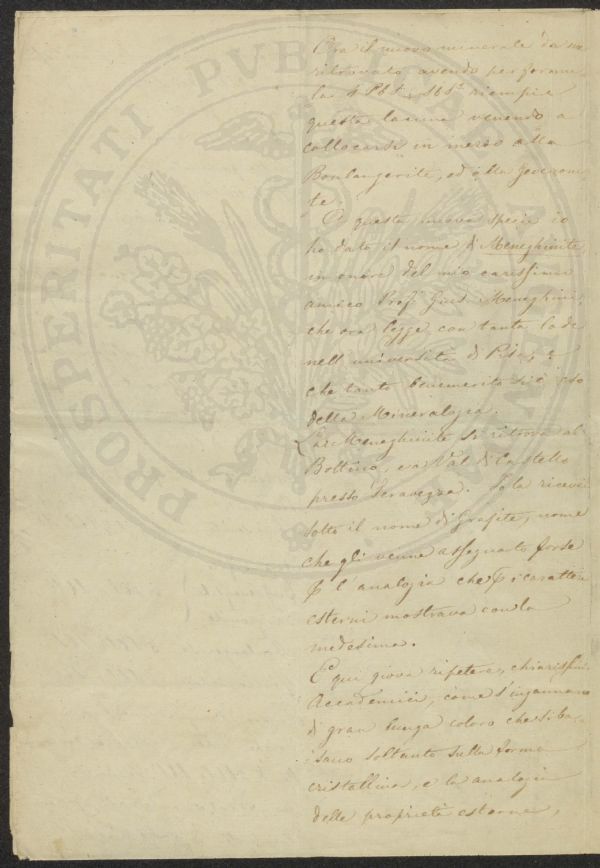 Ora il nuovo minerale da me
ritrovato avendo per formu
la 4 PbS, SbS³ riempie
questa lacuna venendo a
collocarsi in mezzo alla
Boulangerite, ed alla Geocroni
te.
A questa nuova specie io
ho dato il nome di Meneghinite
in onore del mio carissimo
amico Prof. Gius. Meneghini,
che ora legge con tanta lode
nell' università di Pisa, e
che tanto benemerito si è reso
della Mineralogia.
La Meneghinite si ritrova al
Bottino, e a Val di Castello
presso Seravezza. Io la ricevei
sotto il nome di Grafite, nome
che gli venne assegnato forse
p l'analogia che p i caratteri
esterni mostrava con la
medesima.
E qui giova ripetere, chiarissimi
Accademici, come s'ingannano
di gran lunga coloro che si ba
sano soltanto sulla forma
cristallina, e la analogia
delle proprietà esterne,
PROSPERITATI PVBLICAE AVGENDAE